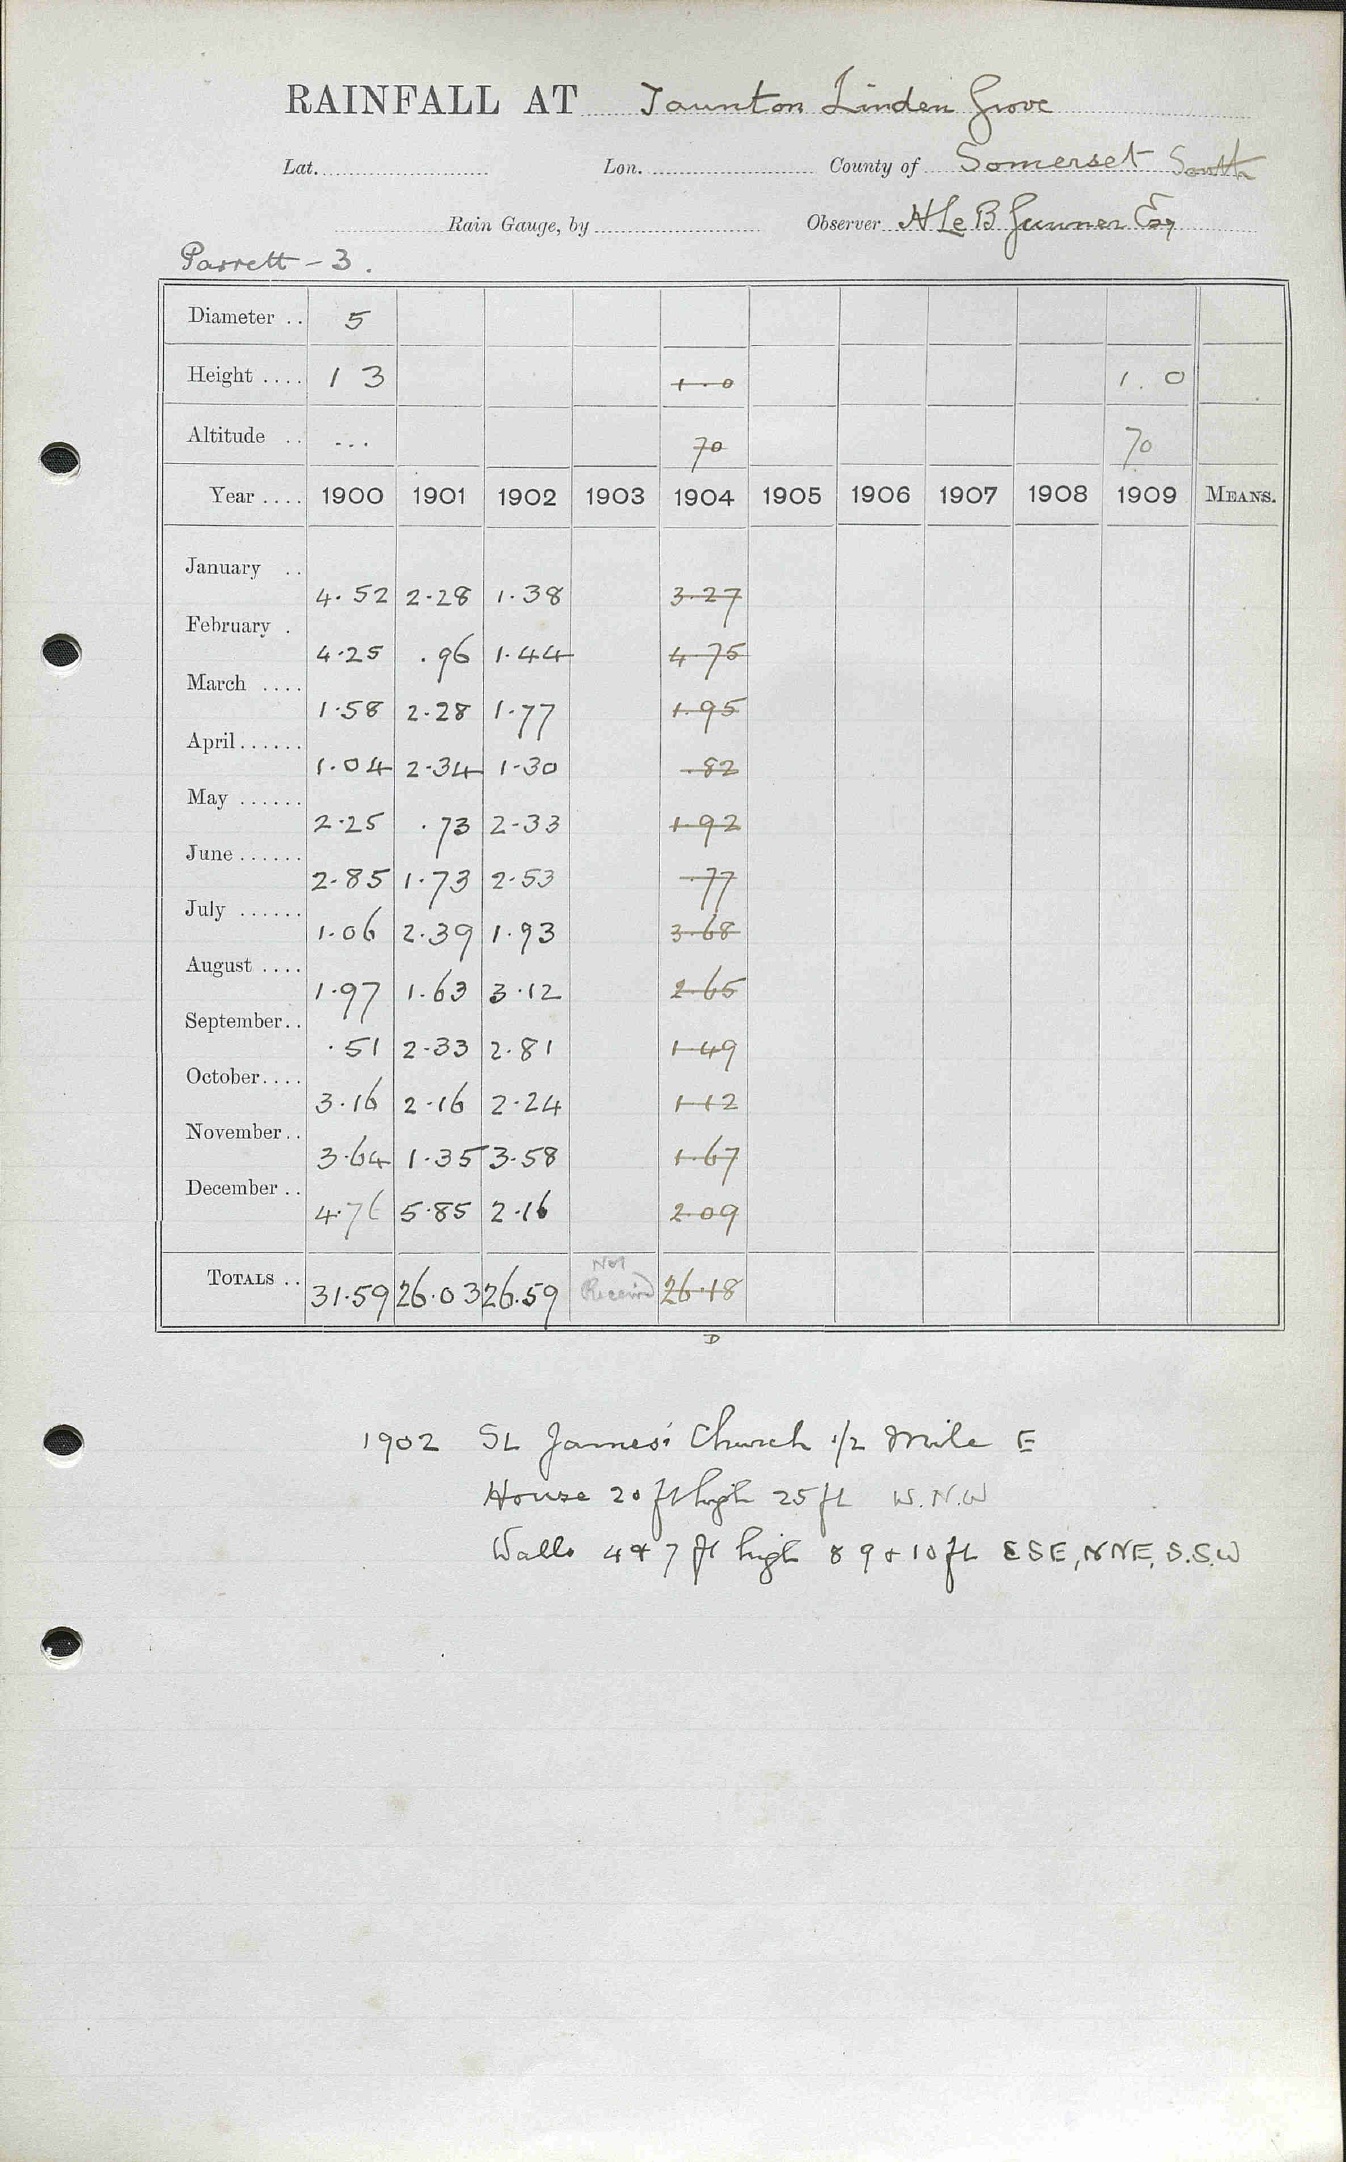 RAINFALL AT Taunton Linden Grove
Lat. Lon. County of Somerset South
Rain Gauge, by Observer H Le B Gunner Esq
Parrett - 3.
Diameter .. 5
Height .... 1 3 1.0 1.0
Altitude .. ... 70 70
Year .... 1900 1901 1902 1903 1904 1905 1906 1907 1908 1909 MEANS.
January .. 4.52 2.28 1.38 3.27
February . 4.25 .96 1.44 4.75
March .... 1.58 2.28 1.77 1.95
April ...... 1.04 2.34 1.30 .82
May ...... 2.25 .73 2.33 1.92
June ...... 2.85 1.73 2.53 .77
July ...... 1.06 2.39 1.93 3.68
August .... 1.97 1.63 3.12 2.65
September .. .51 2.33 2.81 1.49
October .... 3.16 2.16 2.24 1.12
November .. 3.64 1.35 3.58 1.67
December .. 4.76 5.85 2.16 2.09
TOTALS .. 31.59 26.03 26.59 Not Received 26.18
D
1902 St James' Church 1/2 Mile E
House 20 ft high 25 ft W.N.W
Walls 4 & 7 ft high 8 9 & 10 ft ESE, NNE, S.S.W